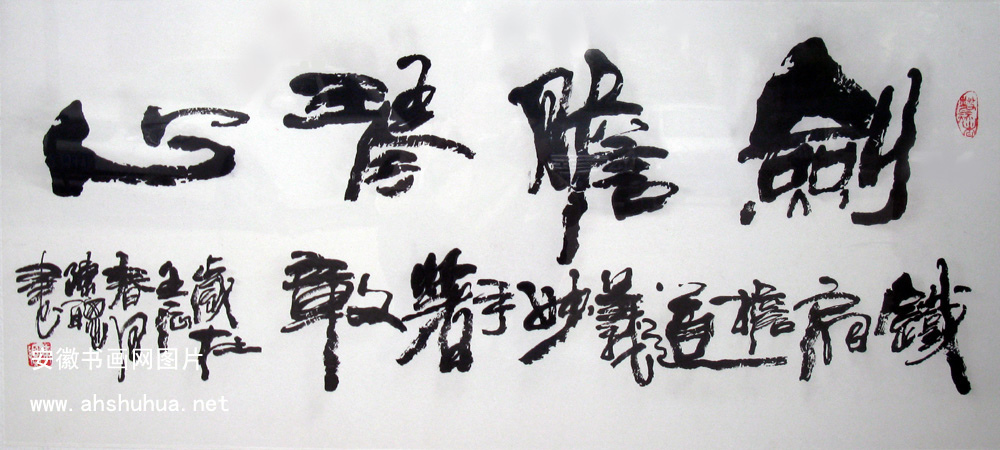 劍膽琴心
鐵肩擔道義妙手著文章
歲在
壬辰
春月
陳
書
安徽书画网图片
www.ahshuhua.net